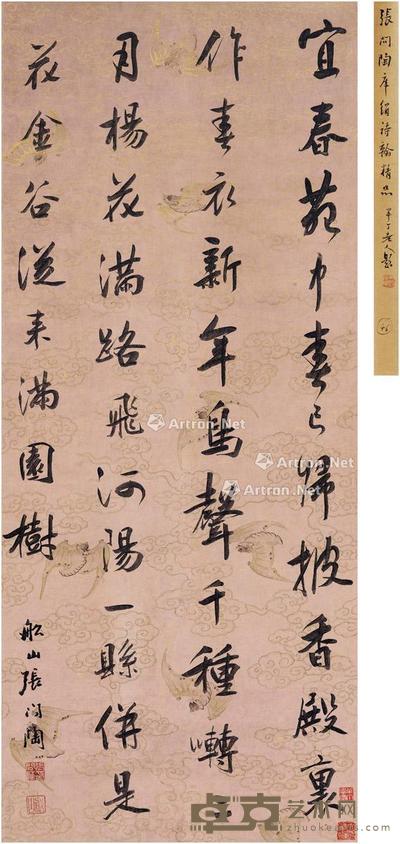 宜春苑中春已歸披香殿裏
作春衣新年鳥聲千種囀二
月楊花滿路飛河陽一縣併是
花金谷從來滿園樹
船山張問陶
張問陶庫絹詩翰精品 半丁老人題
Artron.Net
Artron.Net
Artron.Net
卓克艺术网